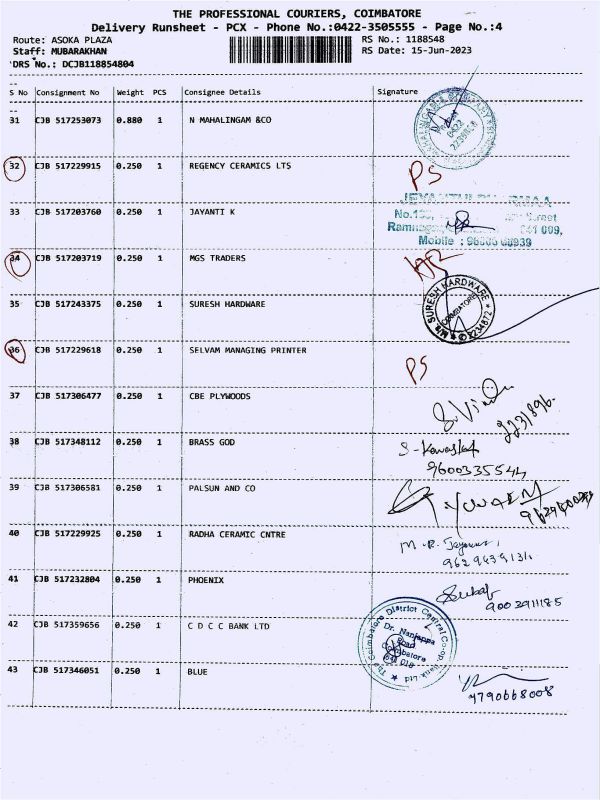 THE PROFESSIONAL COURIERS, COIMBATORE
Delivery Runsheet - PCX - Phone No.:0422-3505555 - Page No.:4
Route: ASOKA PLAZA RS No.: 1188548
Staff: MUBARAKHAN RS Date: 15-Jun-2023
DRS No.: DCJB118854804
S No Consignment No Weight PCS Consignee Details Signature
31 CJB 517253073 0.880 1 N MAHALINGAM &CO
32 CJB 517229915 0.250 1 REGENCY CERAMICS LTS PS
33 CJB 517203760 0.250 1 JAYANTI K
Mobile :
34 CJB 517203719 0.250 1 MGS TRADERS
35 CJB 517243375 0.250 1 SURESH HARDWARE
SURESH HARDWARE
COIMBATORE
36 CJB 517229618 0.250 1 SELVAM MANAGING PRINTER PS
37 CJB 517306477 0.250 1 CBE PLYWOODS
38 CJB 517348112 0.250 1 BRASS GOD
9600335544
39 CJB 517306581 0.250 1 PALSUN AND CO
40 CJB 517229925 0.250 1 RADHA CERAMIC CNTRE
41 CJB 517232804 0.250 1 PHOENIX
9003911185
42 CJB 517359656 0.250 1 C D C C BANK LTD
The Coimbatore District Central Co-op. Bank Ltd
Dr. Nanjappa
Road
Coimbatore
641 018
43 CJB 517346051 0.250 1 BLUE
7790668008